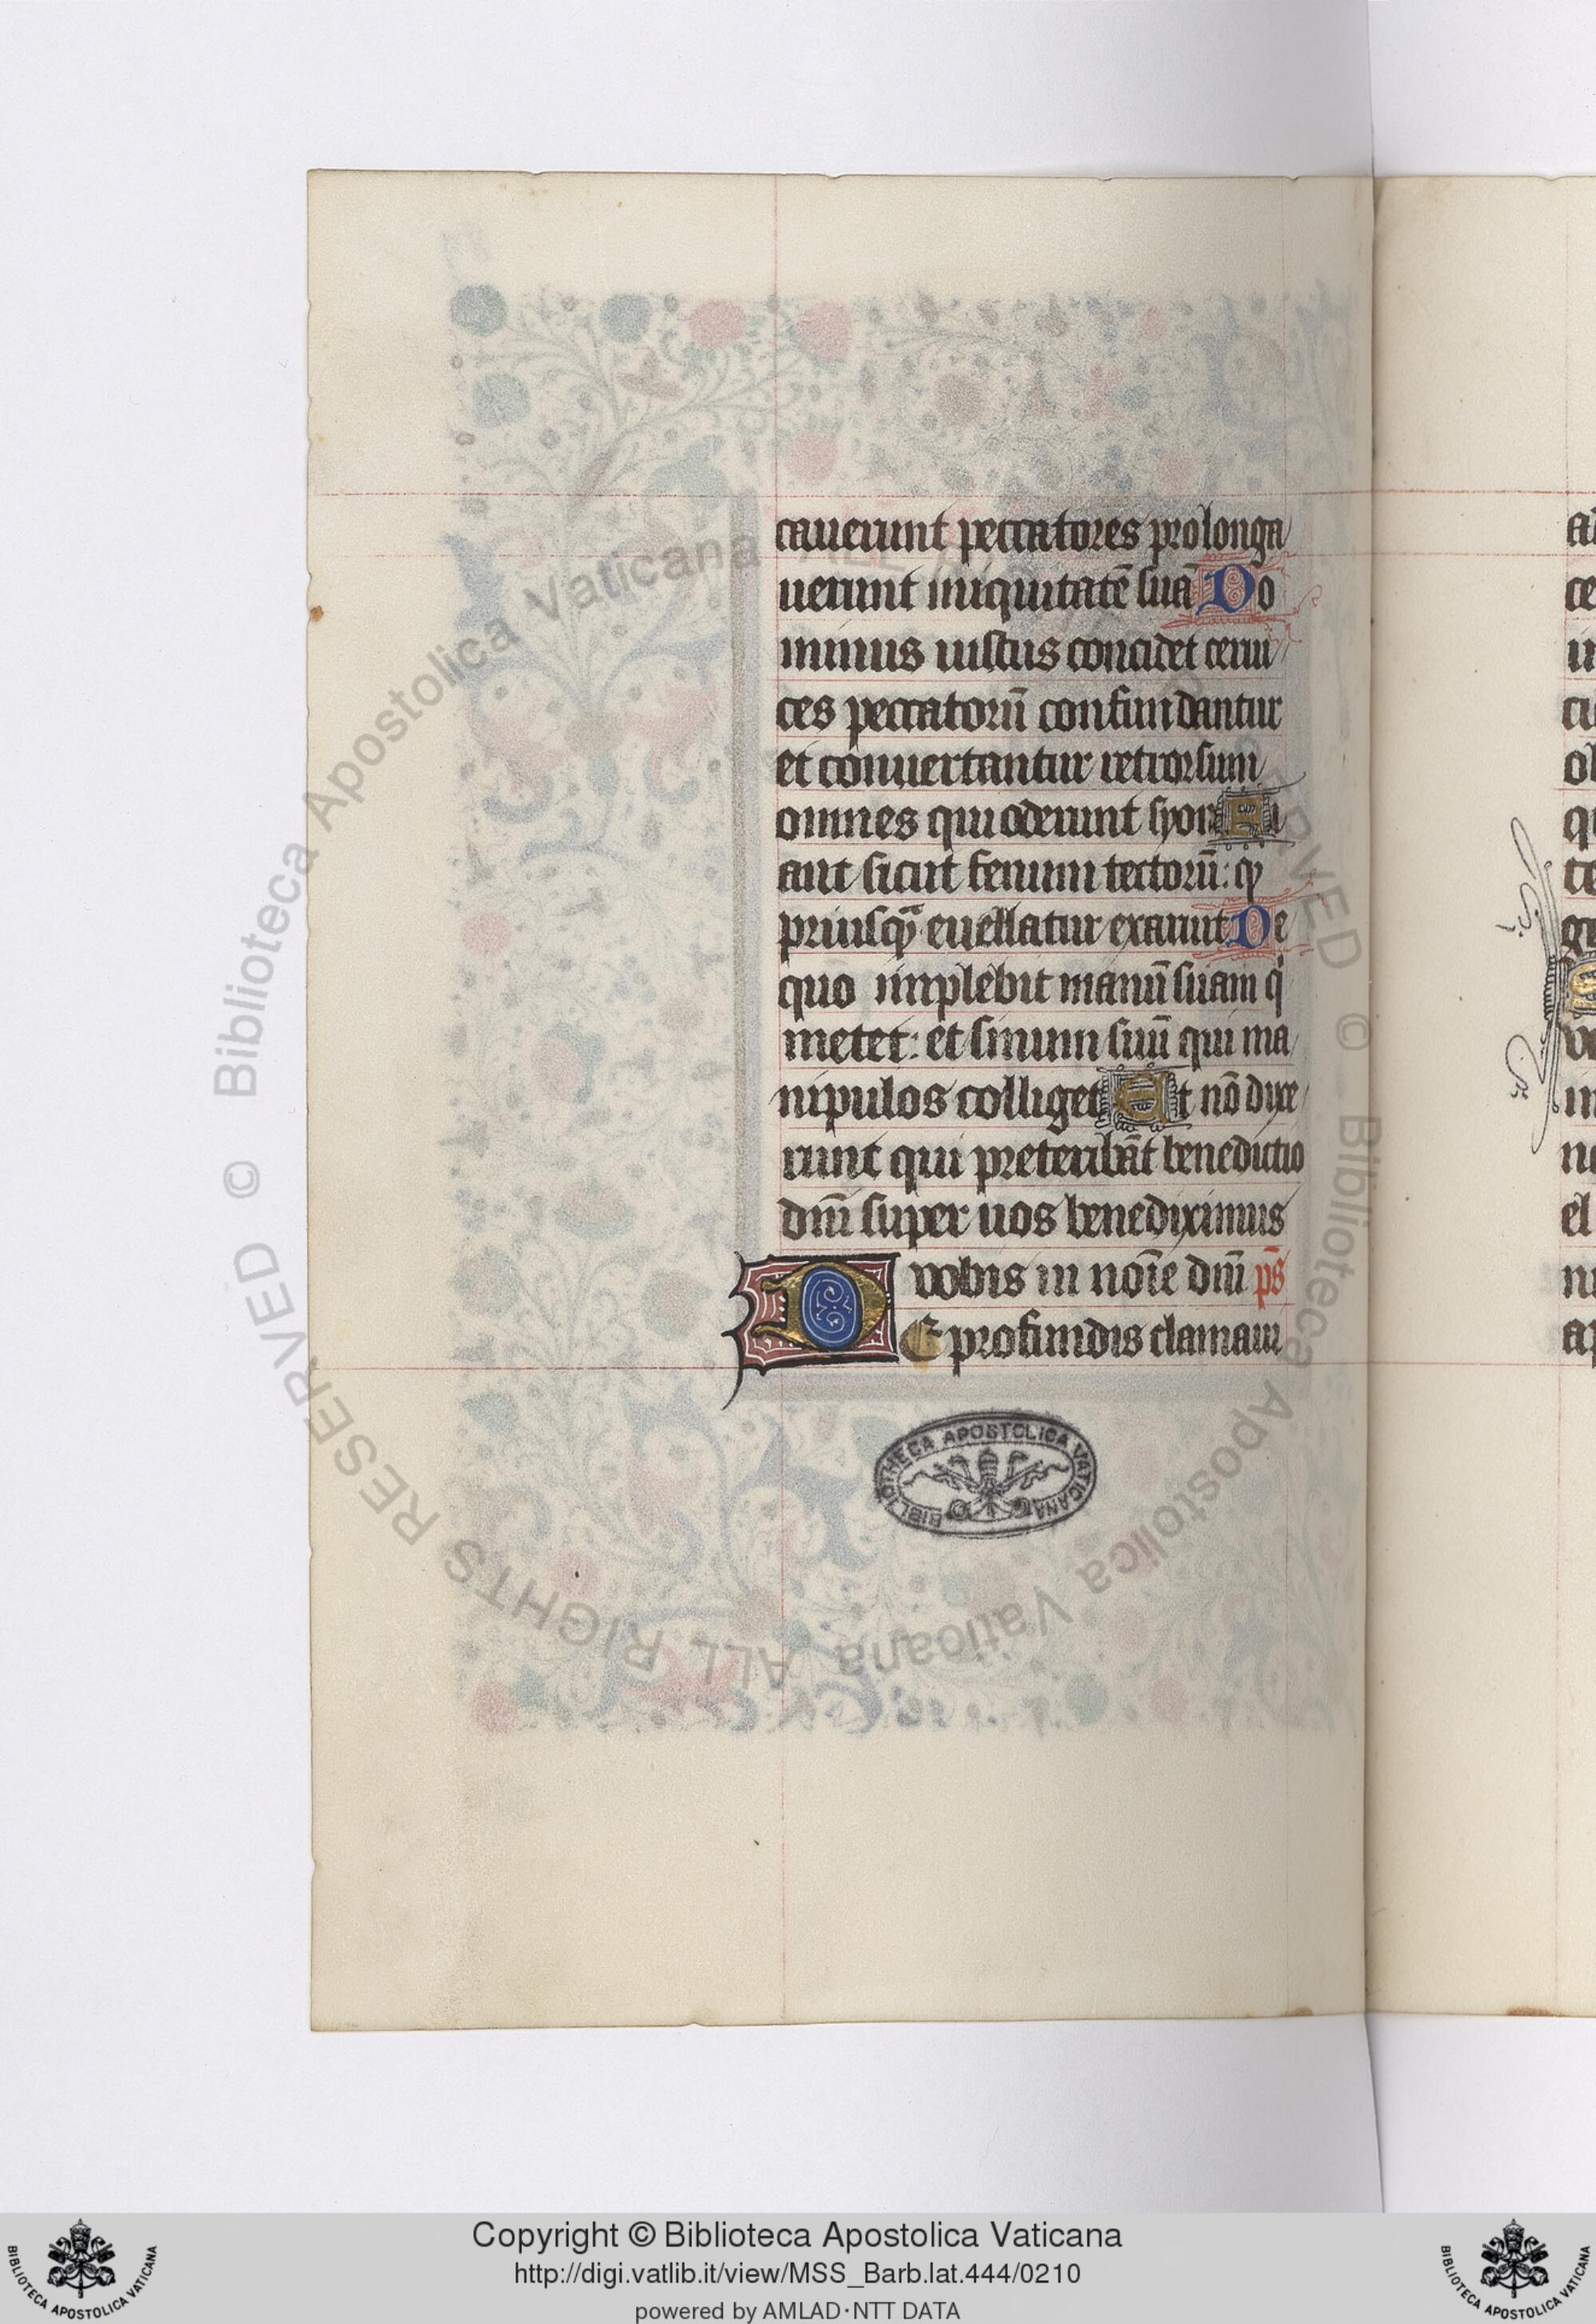 cauerunt peccatores prolonga
uerunt iniquitatē suā Do
minus iustus concidet cerui
ces peccatorū confundantur
et conuertantur retrorsum
omnes qui oderunt syon Fi
ant sicut fenum tectorū: qͥ
priusqᷓ euellatur exaruit De
quo implebit manū suam qͥ
metet: et sinum suū qui ma
nipulos colliget Et nō dixe
runt qui preteribāt benedictio
dn̄i super uos benediximus
vobis in noīe dn̄i ps̄
DE profundis clamaui
BIBLIOTHECA APOSTOLICA VATICANA
© Biblioteca Apostolica Vaticana ALL RIGHTS RESERVED
© Biblioteca Apostolica Vaticana ALL RIGHTS RESERVED
Copyright © Biblioteca Apostolica Vaticana
http://digi.vatlib.it/view/MSS_Barb.lat.444/0210
powered by AMLAD·NTT DATA
BIBLIOTECA APOSTOLICA VATICANA
BIBLIOTECA APOSTOLICA VATICANA